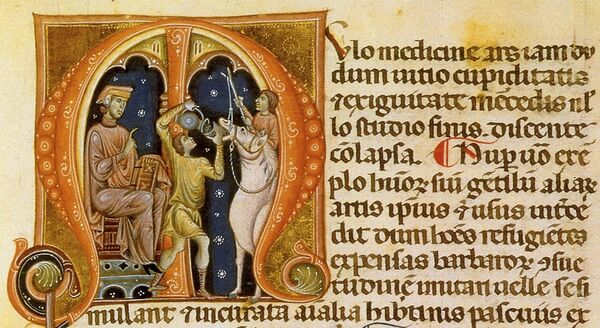 MVlo medicine ars iam du
dum uitio cupiditatis
⁊ exiguitate mecedis nl
lo studio finis. discente
colapsa. Nup uo exe
plo huor sui getiliu aliar
artis ipius ⁊ usus inte
dit dum hoes refugietes
expensas barbaror ⁊ sue
tudine imitari uelle se si
mulant ⁊ incurata aialia hibinis pascuis ex